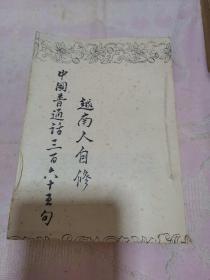 越南人自修
中國普通話三百六十五句